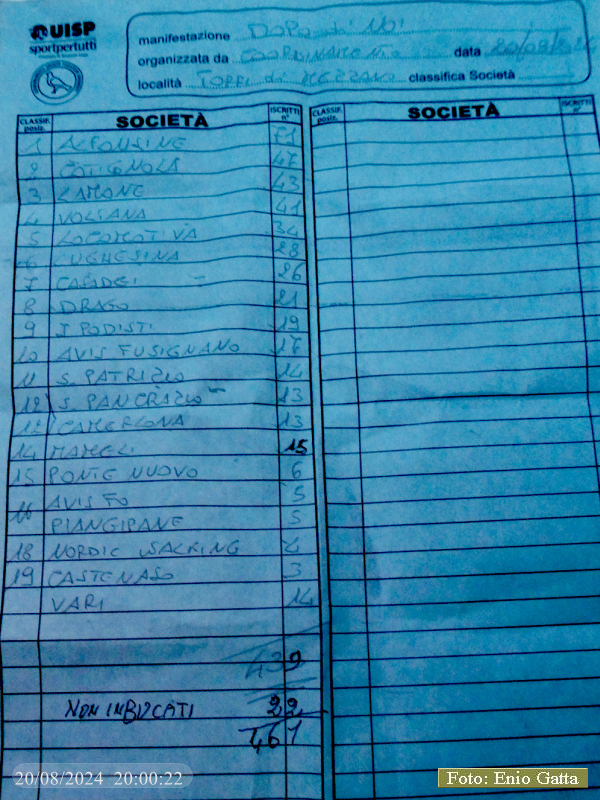 UISP
sportpertutti
manifestazione DOPO di NOI
organizzata da COORDINAMENTO data 20/08/24
località TORRI di MEZZANO classifica Società
CLASSIF. posiz. SOCIETÀ ISCRITTI n° CLASSIF. posiz. SOCIETÀ ISCRITTI n°
1 ALFONSINE 71
2 COTIGNOLA 47
3 LAMONE 43
4 VOLTANA 41
5 LOCOMOTIVA 34
6 LUGHESINA 28
7 CASADEI 26
8 DRAGO 21
9 I PODISTI 19
10 AVIS FUSIGNANO 17
11 S. PATRIZIO 14
12 S. PANCRAZIO 13
13 CAMERLONA 13
14 MAMELI 15
15 PONTE NUOVO 6
16 AVIS FO 5
PIANGIPANE 5
18 NORDIC WALKING 4
19 CASTENASO 3
VARI 14
439
NON IMBUCATI 22
461
20/08/2024 20:00:22
Foto: Enio Gatta